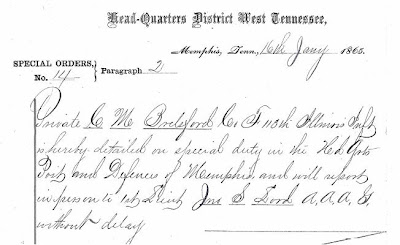 Head-Quarters District West Tennessee,
Memphis, Tenn, 16th Jany 1865.
SPECIAL ORDERS,
No. 14 Paragraph 2
Private C M Brelsford Co F 113th Illinois Inft
is hereby detailed on special duty in the Hd Qrs
Post and Defences of Memphis and will report
in person to 1st Lieut Jno S Lord A.A.A.G.
without delay